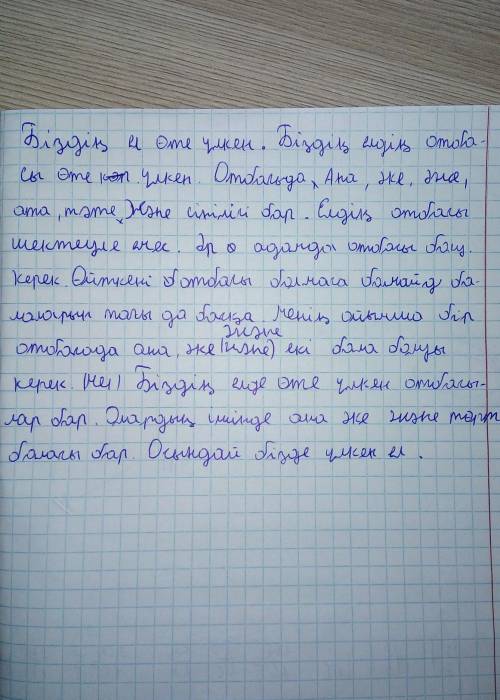 Біздің ел өте үлкен. Біздің елдің отоба-
сы өте көп үлкен. Отбасыда, Ана, әке, әже,
ата, тәте, Және сіңлісі бар. Елдің отбасы
шектеуле емес. Әр адамда отбасы болу
керек. Өйткені отбасы болмаса болмайд ба-
лалықтың тағы да басқа. Менің ойымша бір
және
отбасада ана, әке (және) екі бала болуы
керек. Біздің елде өте үлкен отбасы-
лар бар. Олардың ішінде ана әке және төрт
баласы бар. Осындай бізде үлкен ел.